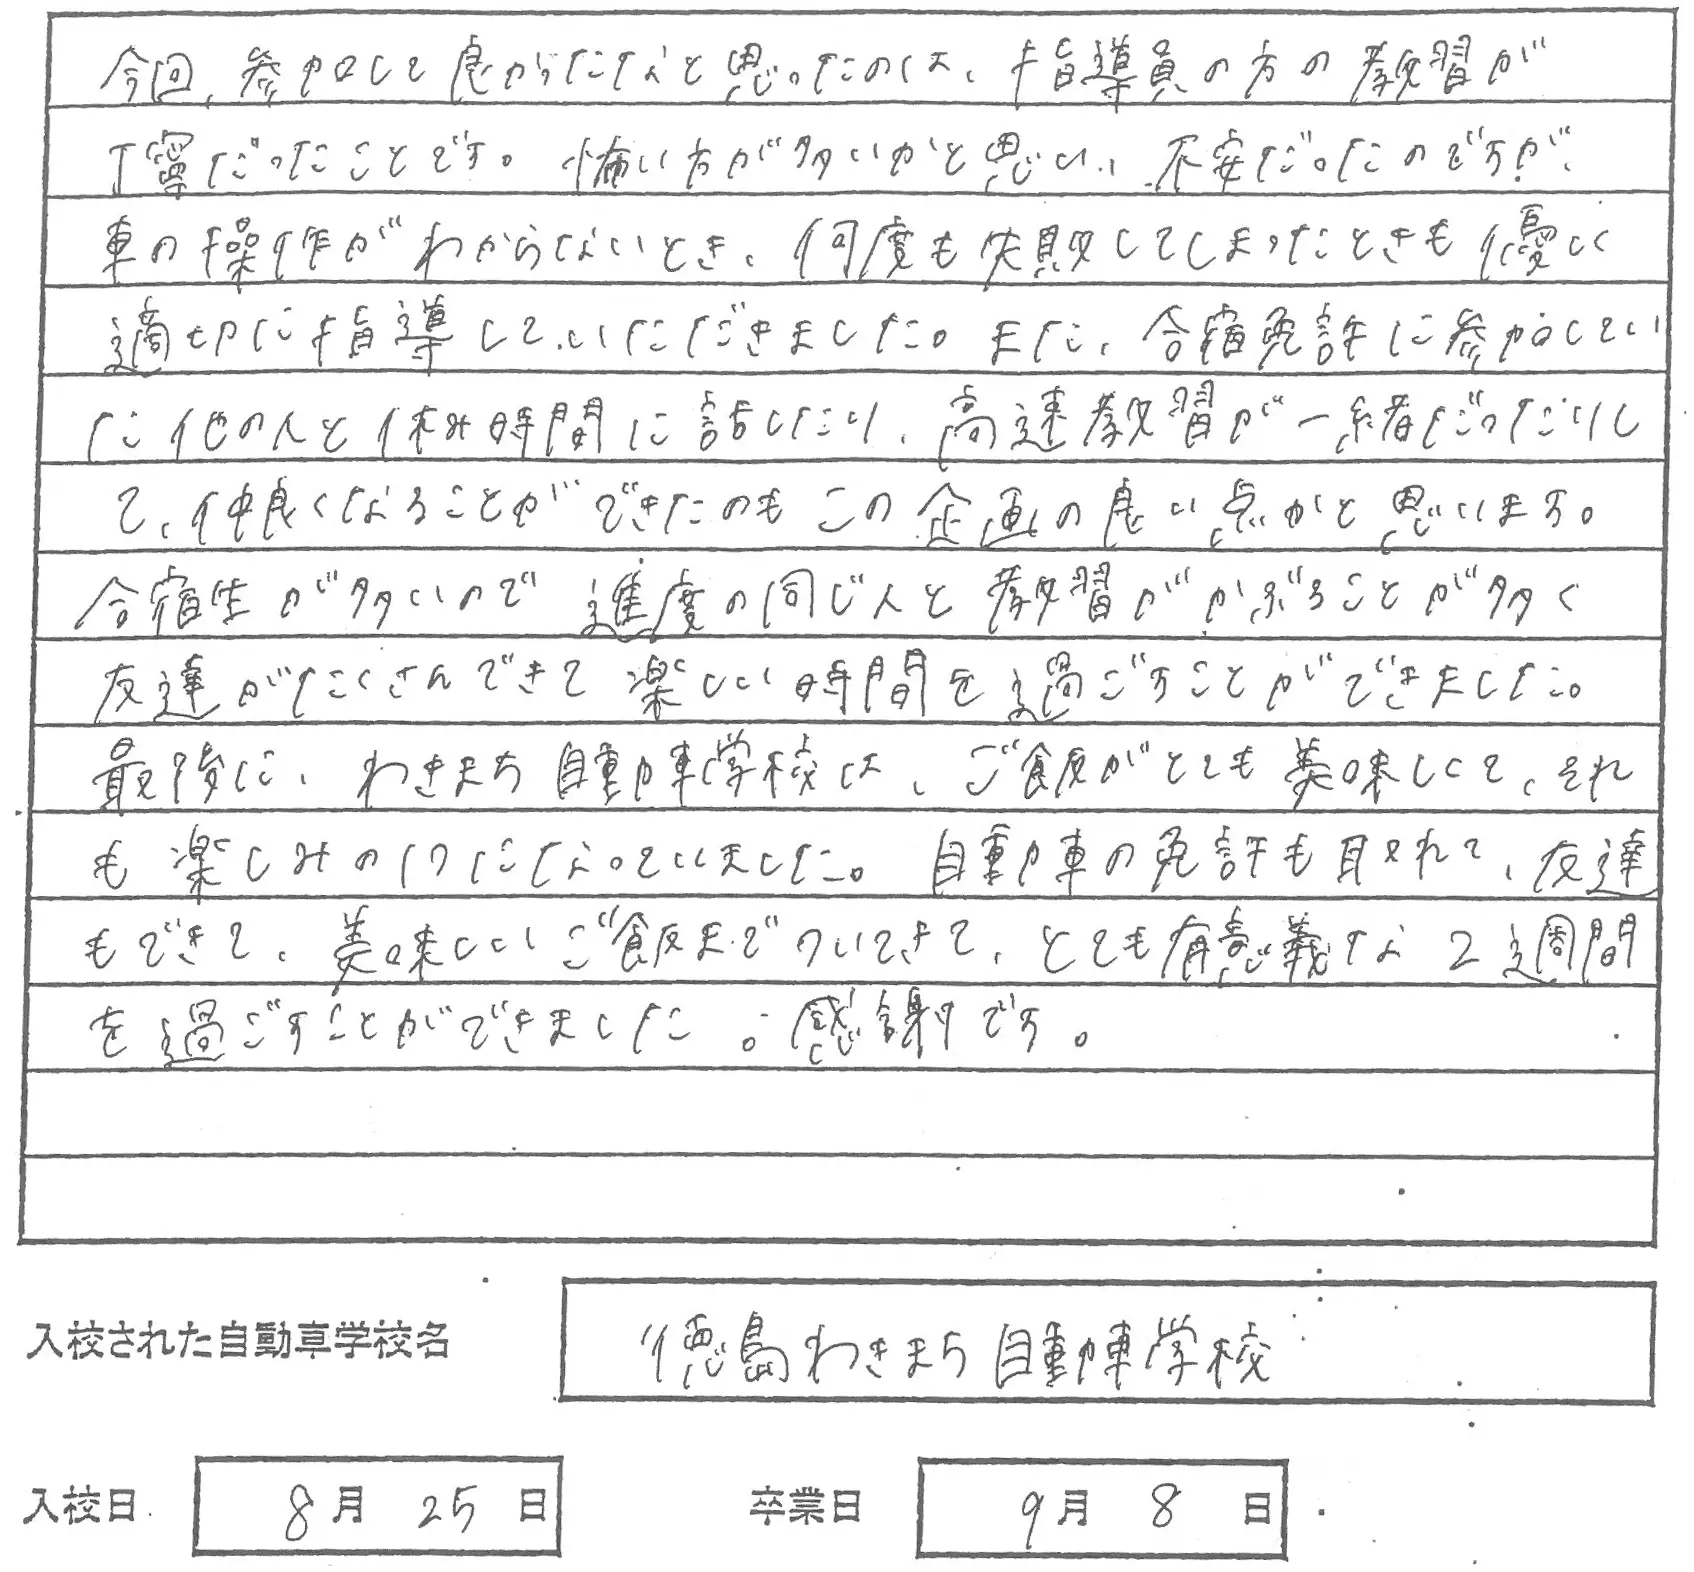 今回、参加して良かったなと思ったのは、指導員の方の教習が
丁寧だったことです。怖い方が多いかと思い、不安だったのですが、
車の操作がわからないとき、何度も失敗してしまったときも優しく
適切に指導していただきました。また、合宿免許に参加してい
た他の人と休み時間に話したり、高速教習が一緒だったりし
て、仲良くなることができたのもこの企画の良い点かと思います。
合宿生が多いので進度の同じ人と教習がかぶることが多く
友達がたくさんできて楽しい時間を過ごすことができました。
最後に、わきまち自動車学校は、ご飯がとても美味しくて、それ
も楽しみの1つになっていました。自動車の免許も取れて、友達
もできて、美味しいご飯までついてきて、とても有意義な2週間
を過ごすことができました。感謝です。
入校された自動車学校名 徳島わきまち自動車学校
入校日 8月 25日 卒業日 9月 8日